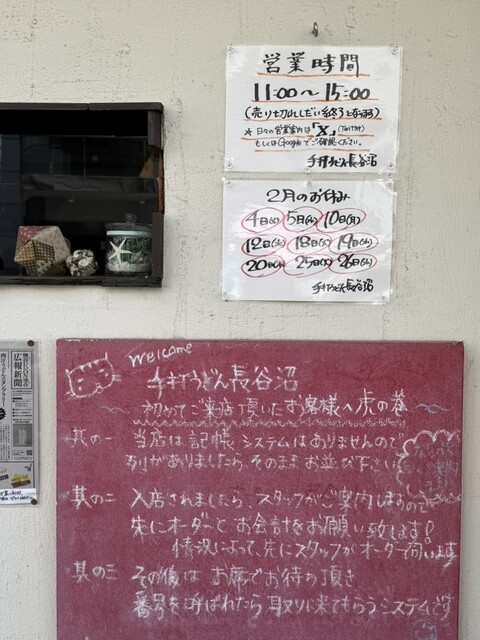 営業時間
11:00〜15:00
(売り切れしだい終了となります)
※ 日々の営業案内は「X」(Twitter)
もしくはGoogleでご確認ください。
手打うどん長谷沼
2月のお休み
4日(火) 5日(水) 10日(月)
12日(水) 18日(火) 19日(水)
20日(木) 25日(火) 26日(水)
手打うどん長谷沼
広報新聞
Welcome
手打うどん長谷沼
初めてご来店頂いたお客様へ虎の巻
其の一 当店は記帳システムはありませんので
列がありましたら、そのままお並び下さい
其の二 入店されましたら、スタッフがご案内しますので
先にオーダーとお会計をお願い致します!
情況によって、先にスタッフがオーダー伺います
其の三 その後は お席でお待ち頂き
番号を呼ばれたら取りに来てもらうシステムです